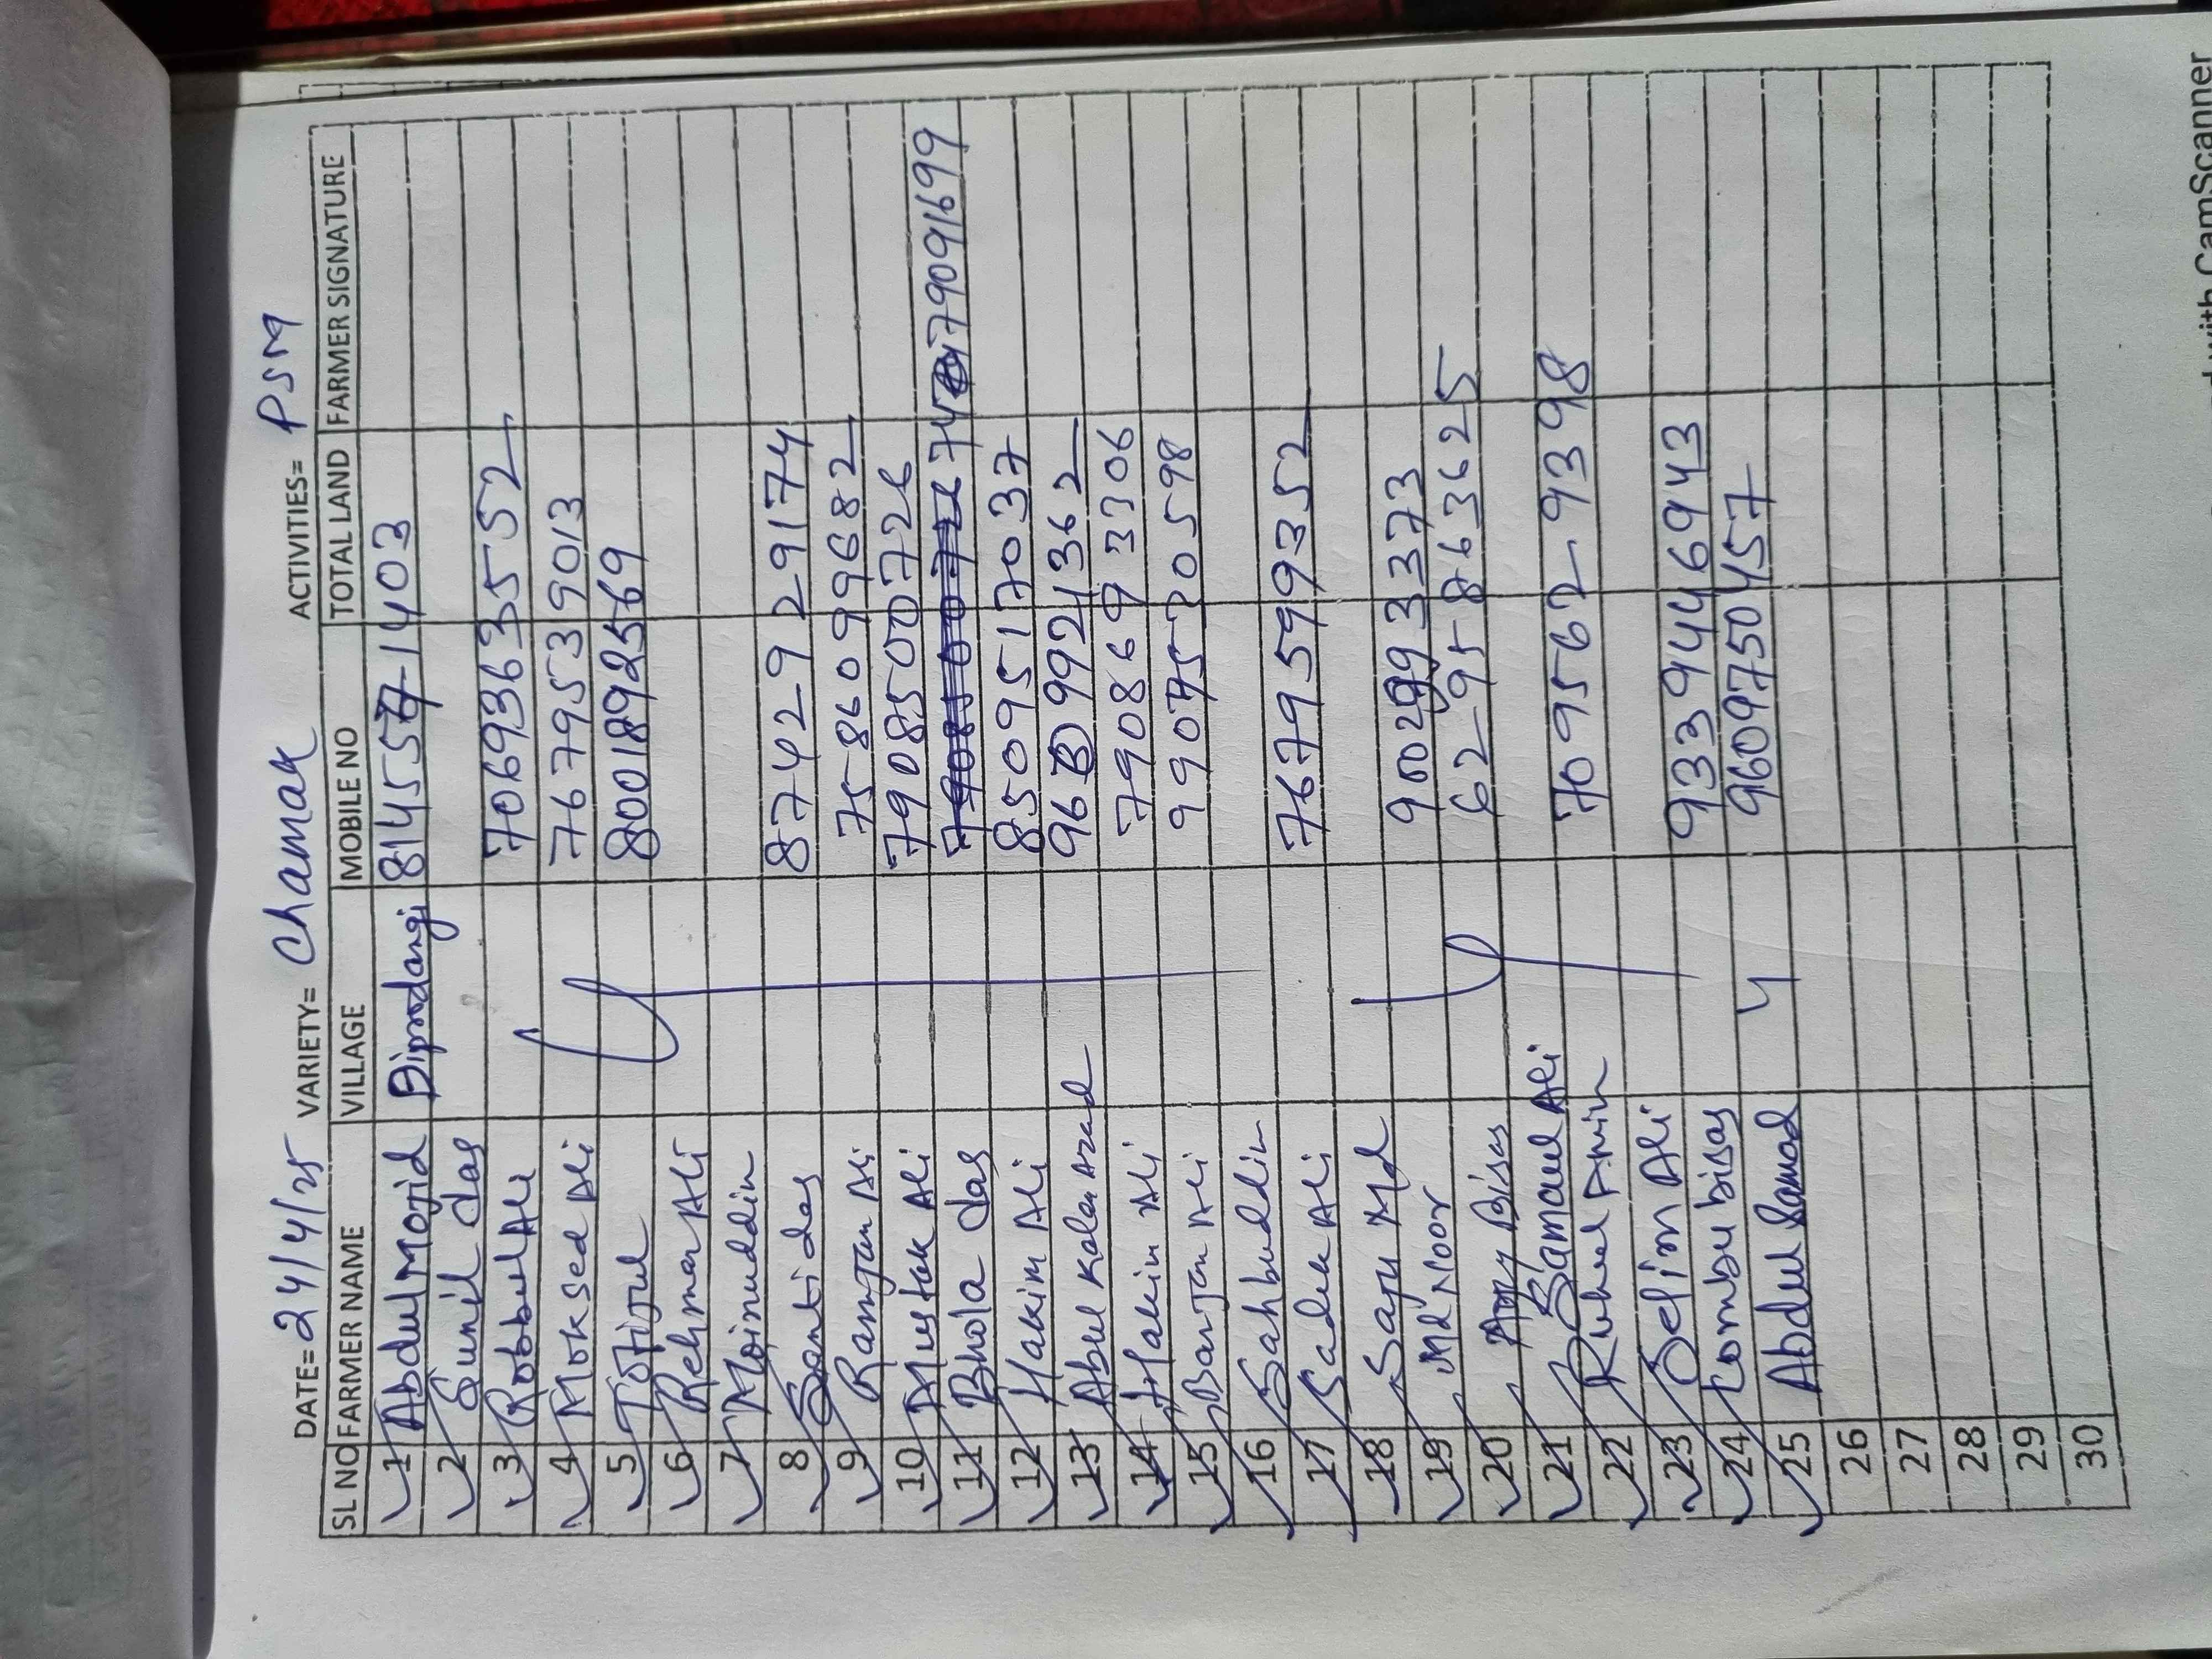 DATE= 24/4/25 VARIETY= Chamak ACTIVITIES= PSM
SL NO FARMER NAME VILLAGE MOBILE NO TOTAL LAND FARMER SIGNATURE
1 Abdul Mojid Dipnodangi 814557-1403
2 Sunil das
3 Robbul Ali 7069363552
4 Moksed Ali 7679539013
5 Tofijul 8001892569
6 Rehman Ali
7 Moinuddin
8 Santi das 8742929174
9 Ramjan Ali 7586099682
10 Mustak Ali 7908500726
11 Bhola das 7909091699
12 Hakim Ali 8509517037
13 Abul Kalam Azad 96 992/1362
14 Hakim Ali 7908693306
15 Barjan Ali
16 Sahbuddin
17 Sadek Ali 7679599352
18 Saju Md
19 Md Noor 62-95863625
20 Bisas
21 Samaul Ali 709562-9398
22 Ruhul Amin
23 Selim Ali 9339446943
24 bisas 9609750457
25 Abdul Samad
26
27
28
29
30
with CamScanner